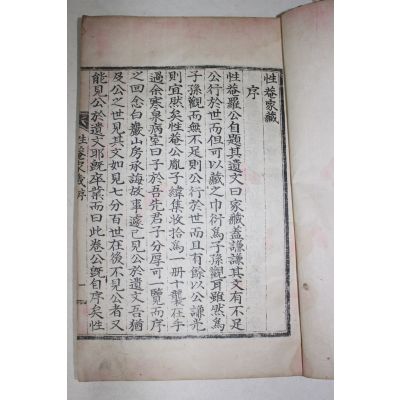 性菴家藏
序
性菴羅公自題其遺文曰家藏盖謙謙其文有不足
公行於世而但可以藏之巾衍爲子孫觀耳雖然爲
子孫觀而無不足則公行於世而且有餘以公謙光
則宜然矣性菴公胤子緯集收拾爲一册十襲在手
過余寒泉病室曰子於吾先君子分厚可一覽而序
之回念白巖山房承誨故事遽已見公於遺文吾猶
及公之世見其文如見七分百世在後不見公者又
能見公於遺文耶旣卒業而曰此卷公旣自序矣性
性菴家藏序
一